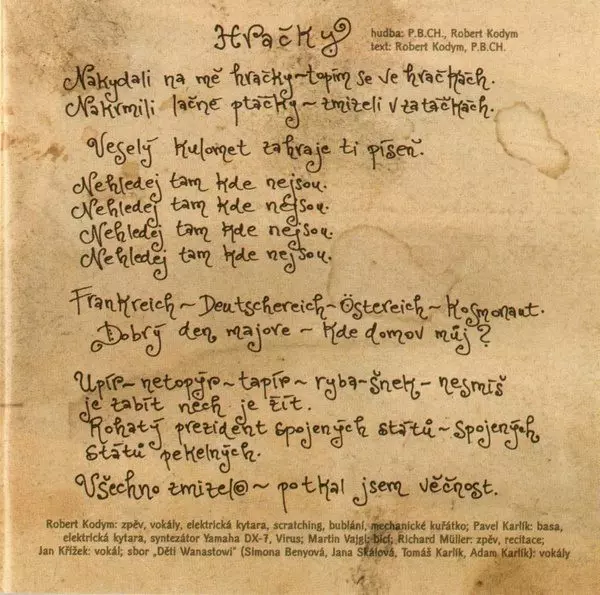 Hračky
hudba: P.B.CH., Robert Kodym
text: Robert Kodym, P.B.CH.
Nakydali na mě hračky~topím se ve hračkách.
Nakrmili lačné ptáčky~zmizeli v zatáčkách.
Veselý kulomet zahraje ti píseň.
Nehledej tam kde nejsou.
Nehledej tam kde nejsou.
Nehledej tam kde nejsou.
Nehledej tam kde nejsou.
Frankreich~Deutschereich~Östereich~Kosmonaut.
Dobrý den majore~Kde domov můj?
Upír~netopýr~tapír~ryba~šnek~nesmíš
je zabít nech je žít.
Rohatý prezident Spojených států~Spojených
států pekelných.
Všechno zmizelo~potkal jsem věčnost.
Robert Kodym: zpěv, vokály, elektrická kytara, scratching, bublání, mechanické kuřátko; Pavel Karlík: basa,
elektrická kytara, syntezátor Yamaha DX-7, Virus; Martin Vajgl: bicí; Richard Müller: zpěv, recitace;
Jan Křížek: vokál; sbor „Děti Wanastowi" (Simona Benyová, Jana Skálová, Tomáš Karlík, Adam Karlík): vokály